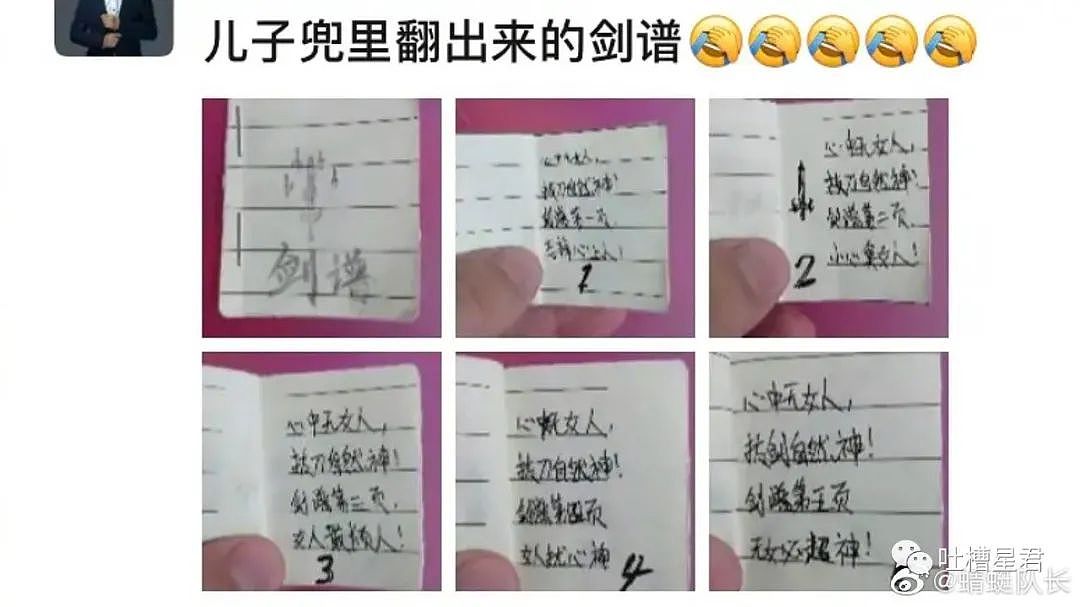 儿子兜里翻出来的剑谱
剑谱
心中无女人，
拔刀自然神！
剑谱第一页，
忘掉心上人！
1
心中无女人，
拔刀自然神！
剑谱第二页
小心臭女人！
2
心中无女人，
拔刀自然神！
剑谱第三页，
女人最烦人！
3
心中无女人，
拔刀自然神！
剑谱第四页
女人扰心神
4
心中无女人，
拔剑自然神！
剑谱第五页
无女必超神！
吐槽星君
@蜻蜓队长